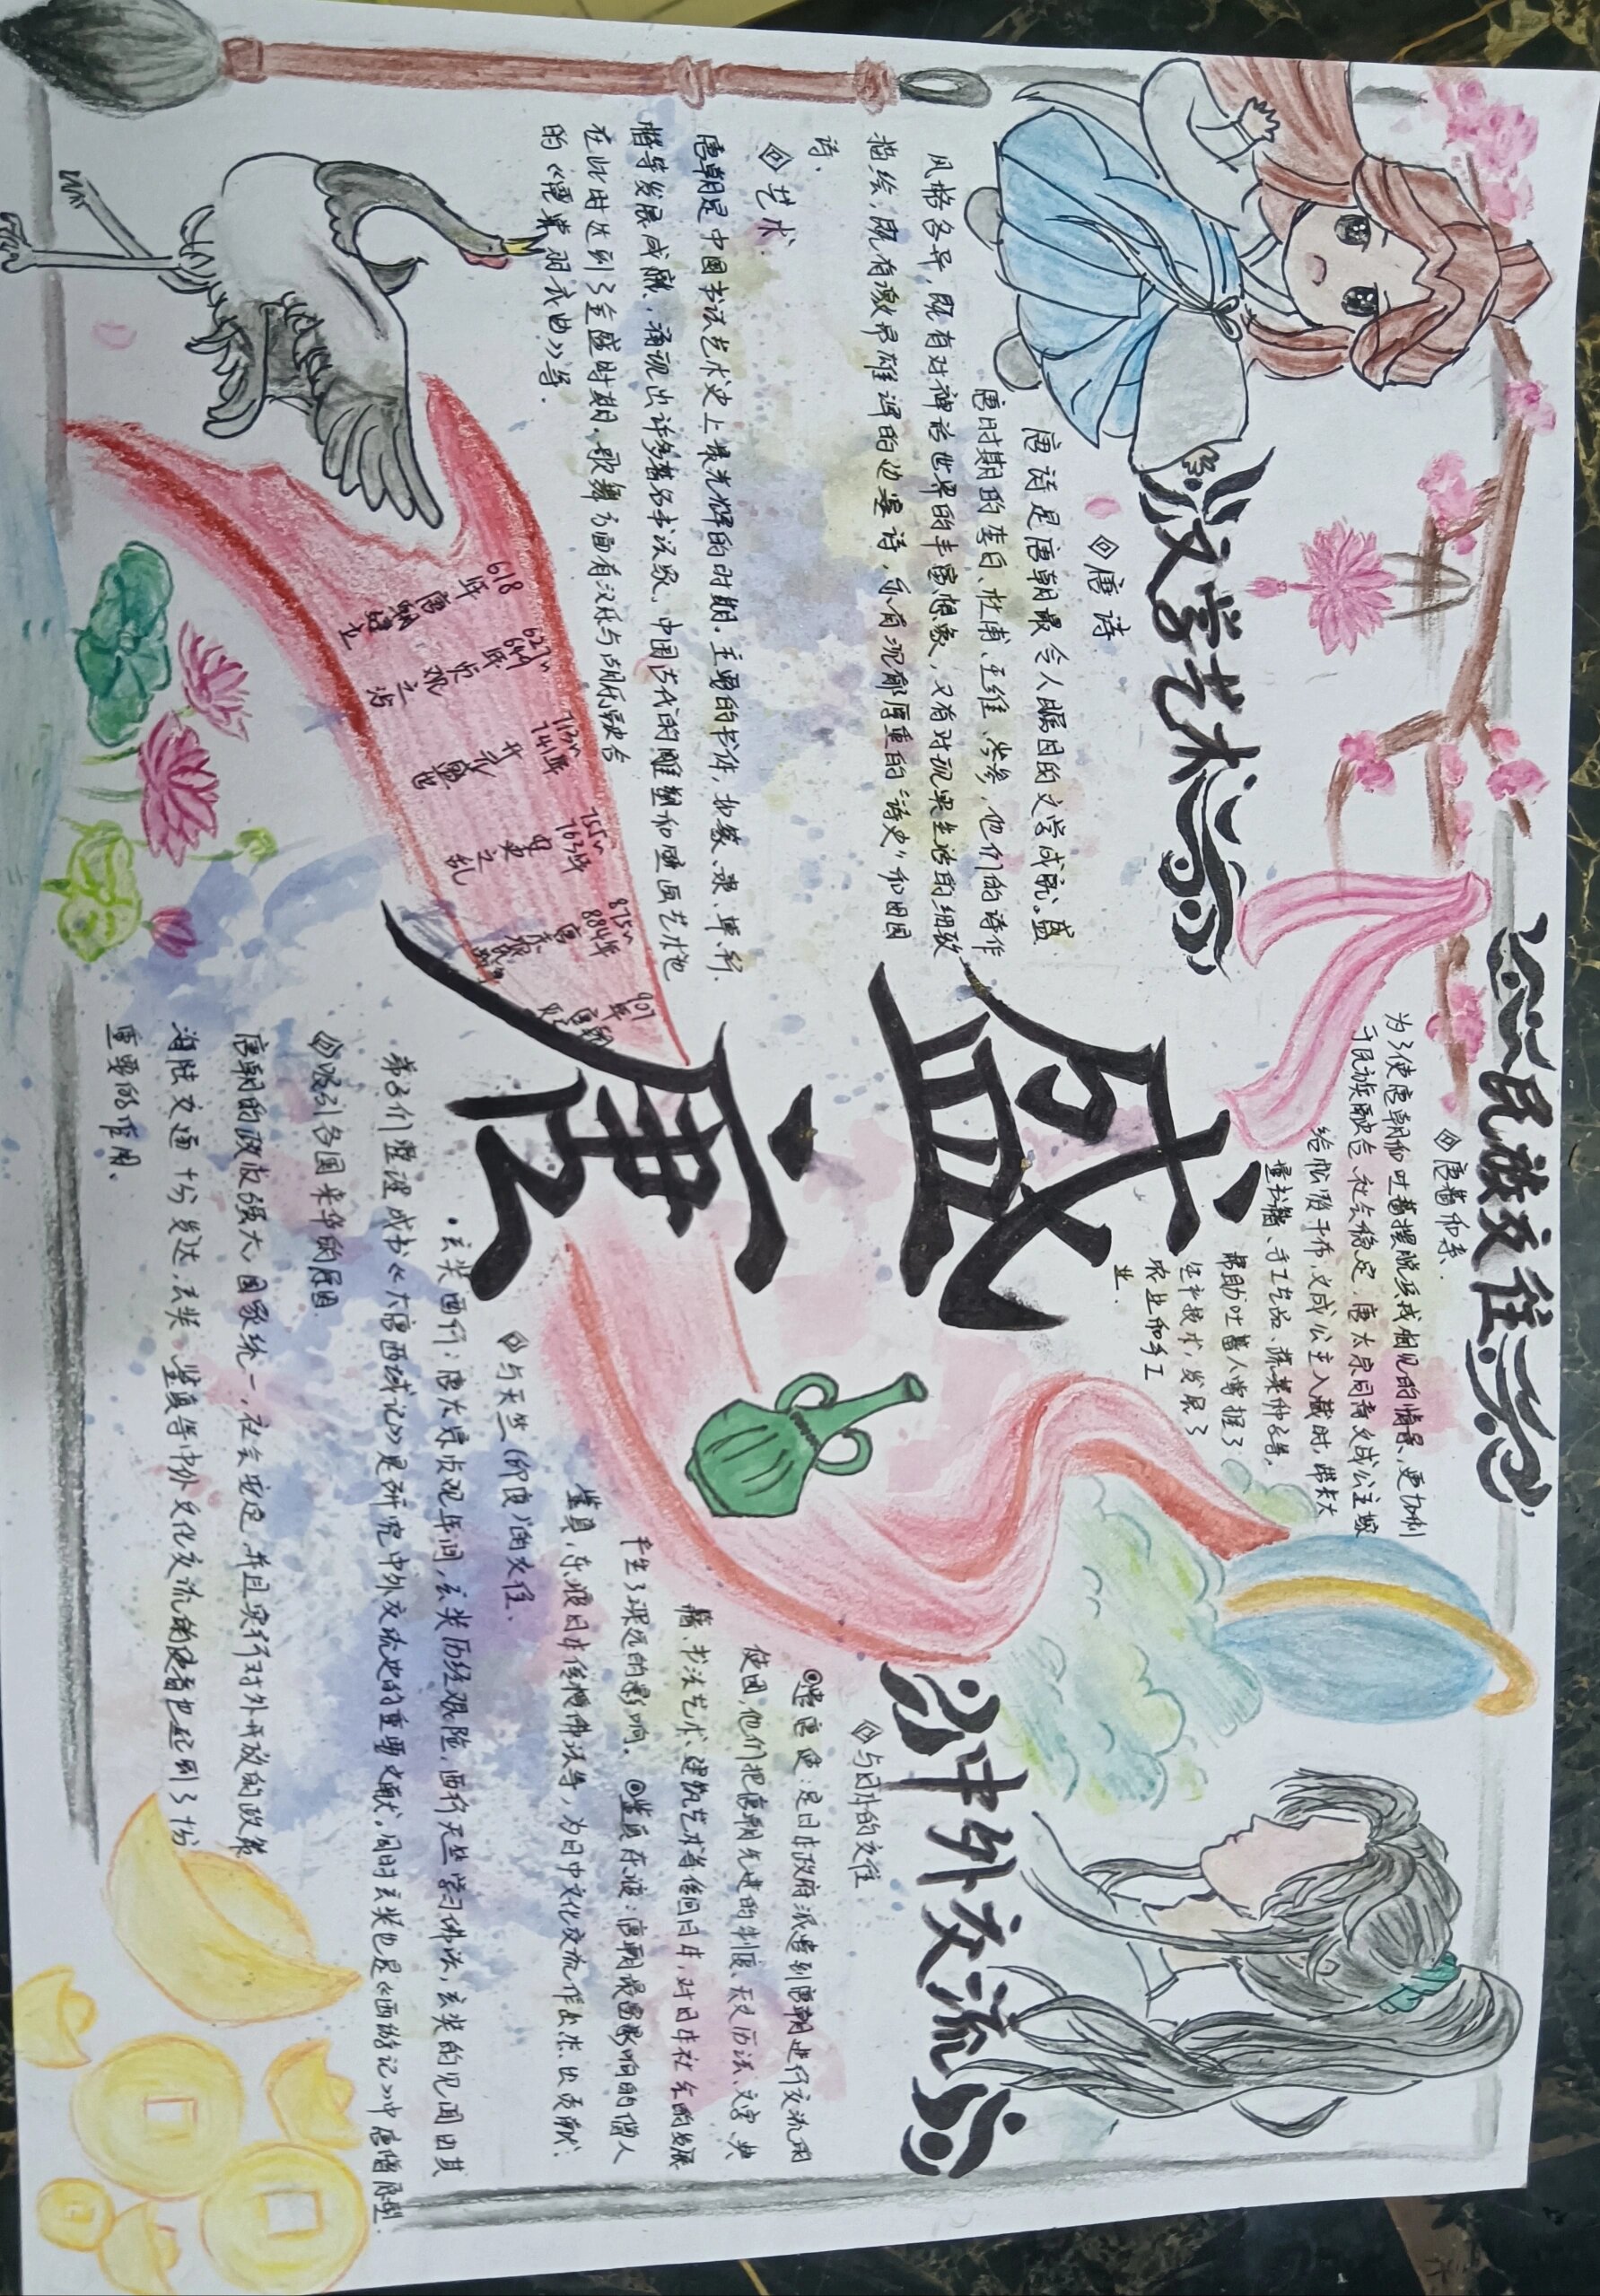 盛唐
文学艺术
◇唐诗.
唐诗是唐朝最令人瞩目的文学成就。盛
唐时期的李白、杜甫、王维、岑参,他们的诗作
风格各异,既有对神话世界的丰富想象,又有对现实生活的细致
描绘,既有激昂雄浑的边塞诗,亦有沉郁厚重的“诗史”和田园
诗.
◇艺术.
唐朝是中国书法艺术史上最光辉的时期.主要的书体,
在此时达到了全盛时期.歌舞方面有汉乐与胡乐融合
的《霓裳羽衣曲》等.
618年
唐朝建立
627~649年
贞观之治
713~741年
开元盛世
755~763年
安史之乱
875~884年
907年
民族交往
◇唐蕃和亲.
为了使唐朝和吐蕃摆脱兵戎相见的情景,更加利
于民族融合、社会稳定,唐太宗同意文成公主嫁
给松赞干布,文成公主入藏时,带来大
量书籍、手工艺品、蔬菜种子等,
帮助吐蕃人掌握了
生产技术,发展了
农业和手工
业.
中外交流
◇与日本的交往
◎遣唐使:是日本政府派遣到唐朝进行交流的
使团,他们把唐朝先进的制度、天文历法、文字、典
籍、书法艺术、建筑艺术等传回日本,对日本社会的发展
产生了深远的影响. ◎鉴真东渡:唐朝最富影响的僧人
鉴真,东渡日本传播佛法等,为日中文化交流作出杰出贡献.
◇与天竺(印度)的交往.
·玄奘西行:唐太宗贞观年间,玄奘历经艰险,西行天竺学习佛法,玄奘的见闻由其
弟子们整理成书《大唐西域记》是研究中外交流史的重要文献。同时玄奘也是《西游记》中唐僧原型.
◇吸引各国来华的原因
唐朝的政权强大,国家统一,社会安定,并且实行对外开放的政策
海陆交通十分发达,玄奘、鉴真等中外文化交流的使者也起到了十分
重要的作用.